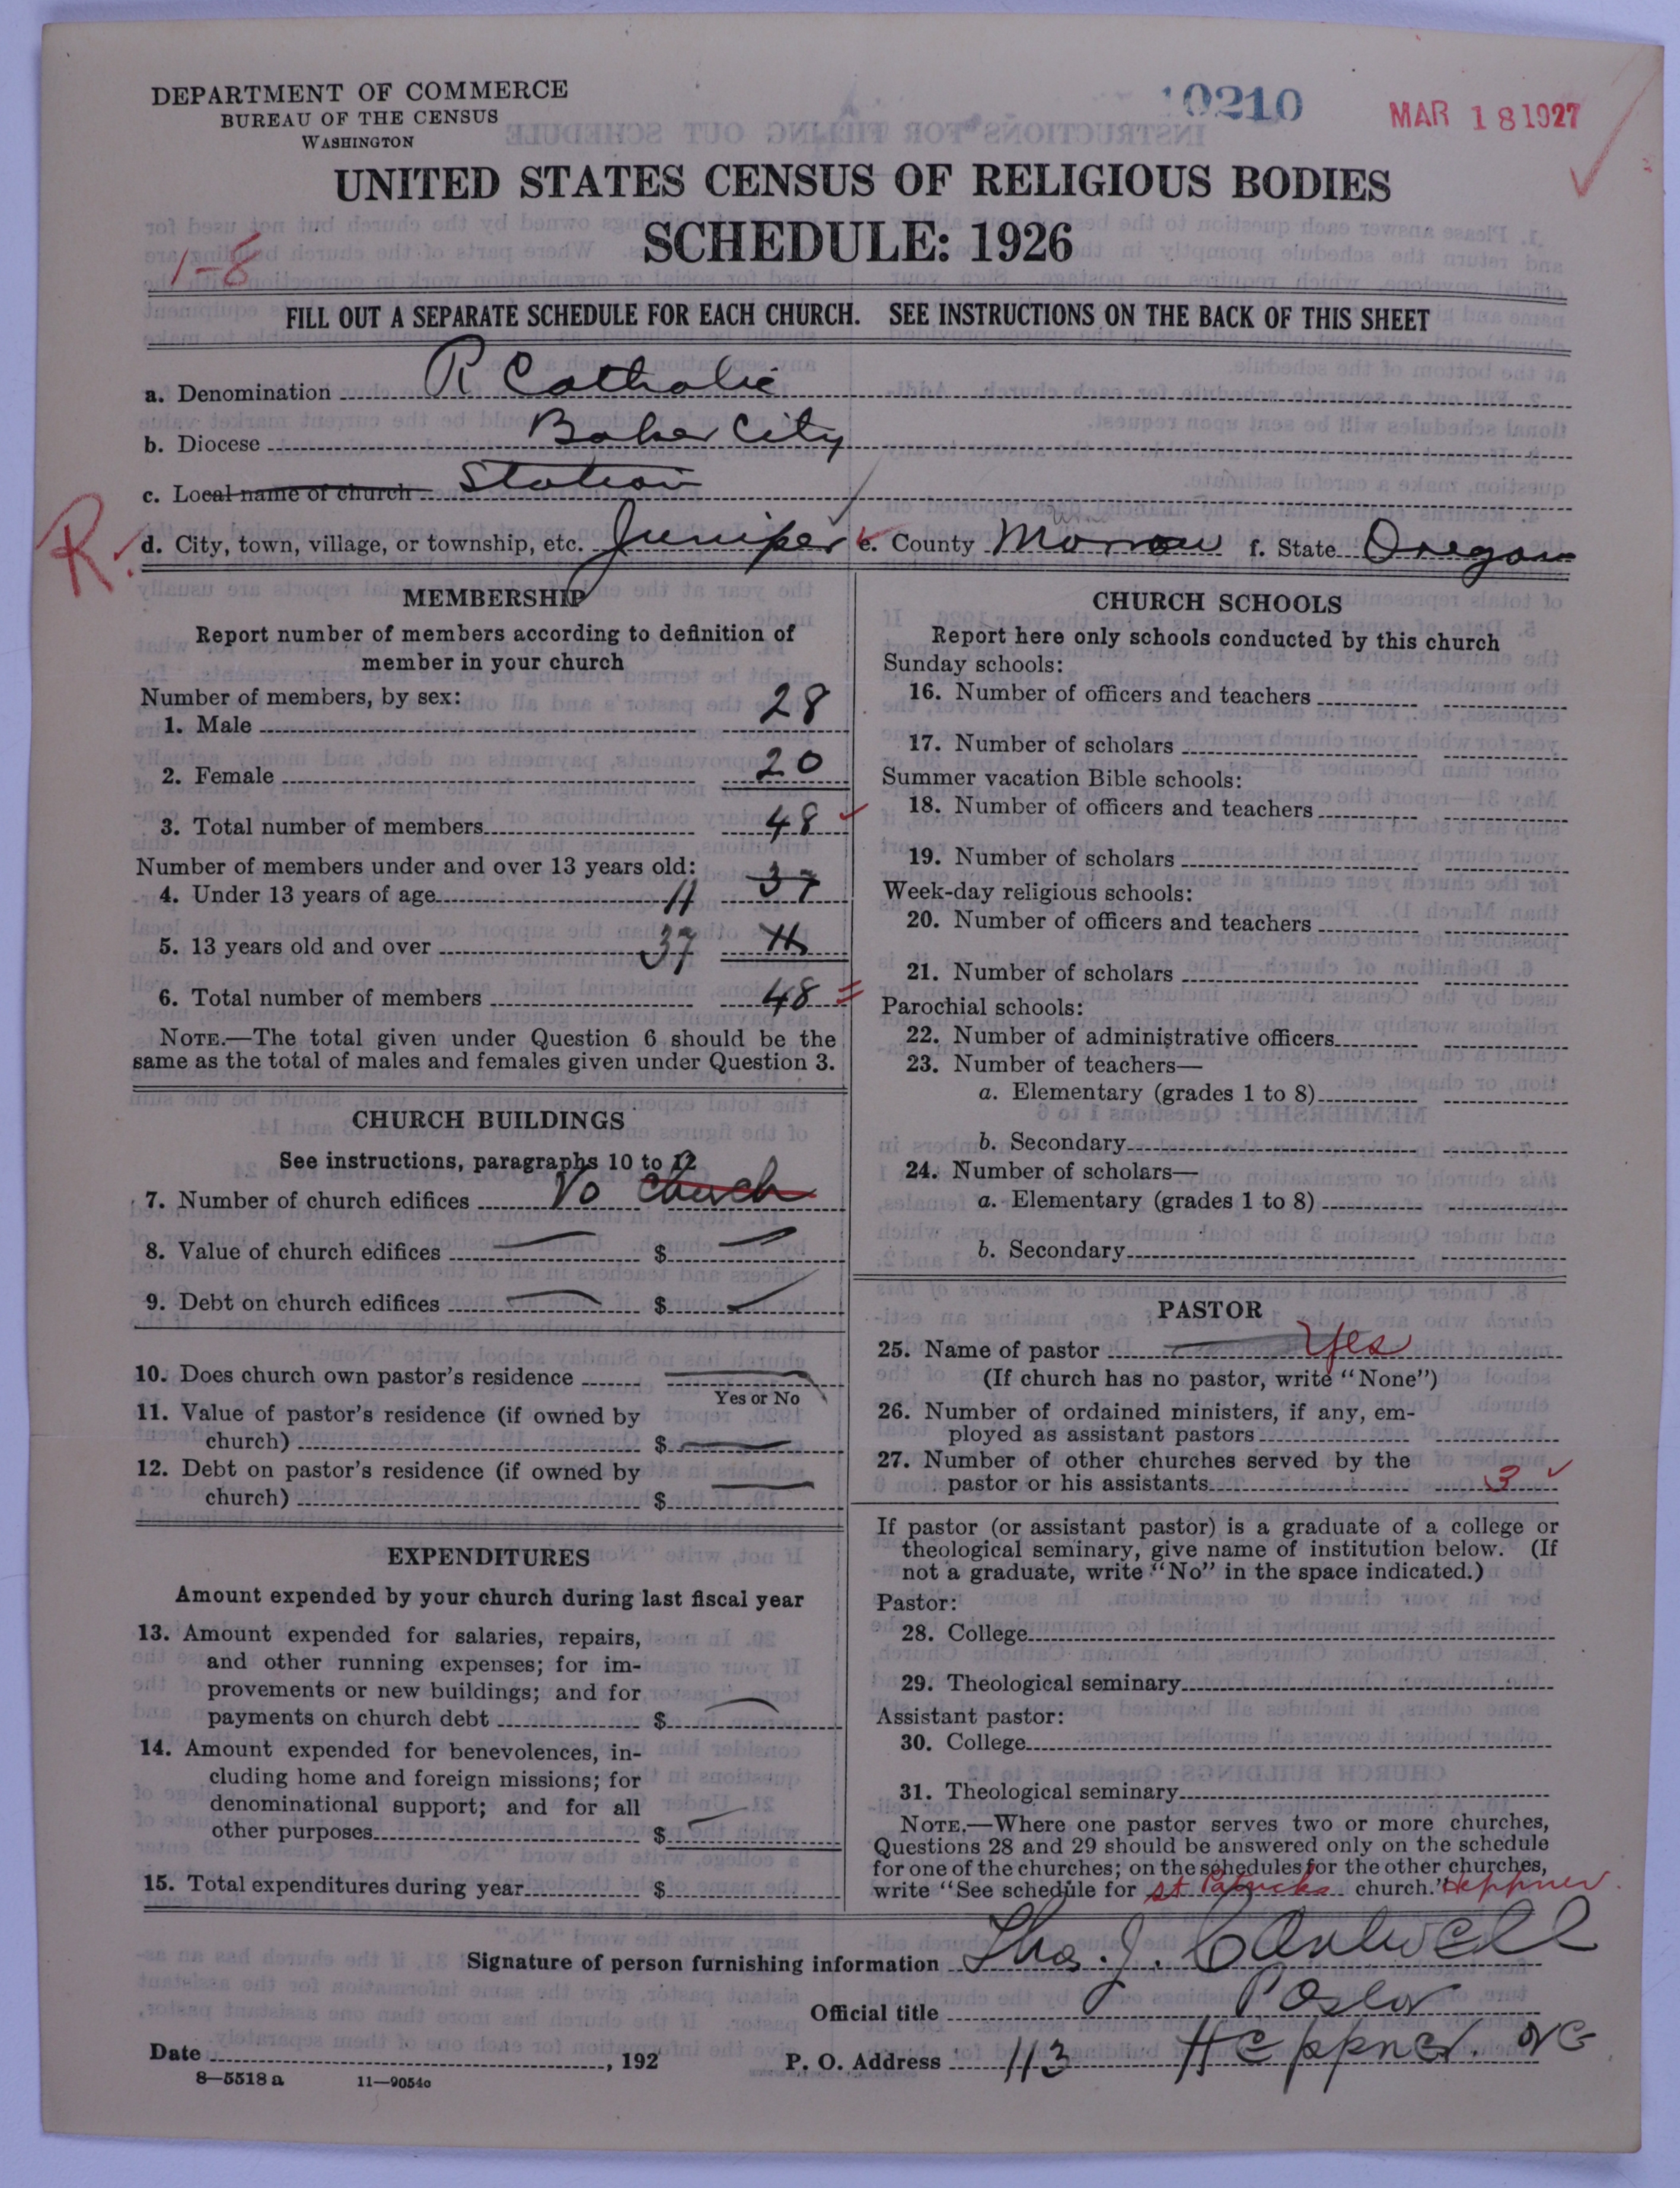 DEPARTMENT OF COMMERCE
BUREAU OF THE CENSUS
WASHINGTON
10210
MAR 18 1927
UNITED STATES CENSUS OF RELIGIOUS BODIES
SCHEDULE: 1926
1-8
FILL OUT A SEPARATE SCHEDULE FOR EACH CHURCH. SEE INSTRUCTIONS ON THE BACK OF THIS SHEET
a. Denomination R Catholic
b. Diocese Baker City
c. Local name of church Station
R. d. City, town, village, or township, etc. Juniper e. County Morrow f. State Oregon
MEMBERSHIP
Report number of members according to definition of
member in your church
Number of members, by sex:
1. Male 28
2. Female 20
3. Total number of members 48
Number of members under and over 13 years old:
4. Under 13 years of age 11 37
5. 13 years old and over 37 11
6. Total number of members 48
NOTE.—The total given under Question 6 should be the
same as the total of males and females given under Question 3.
CHURCH BUILDINGS
See instructions, paragraphs 10 to 12
7. Number of church edifices No church
8. Value of church edifices $
9. Debt on church edifices $
10. Does church own pastor's residence
Yes or No
11. Value of pastor's residence (if owned by
church) $
12. Debt on pastor's residence (if owned by
church) $
EXPENDITURES
Amount expended by your church during last fiscal year
13. Amount expended for salaries, repairs,
and other running expenses; for im-
provements or new buildings; and for
payments on church debt $
14. Amount expended for benevolences, in-
cluding home and foreign missions; for
denominational support; and for all
other purposes $
15. Total expenditures during year $
CHURCH SCHOOLS
Report here only schools conducted by this church
Sunday schools:
16. Number of officers and teachers
17. Number of scholars
Summer vacation Bible schools:
18. Number of officers and teachers
19. Number of scholars
Week-day religious schools:
20. Number of officers and teachers
21. Number of scholars
Parochial schools:
22. Number of administrative officers
23. Number of teachers—
a. Elementary (grades 1 to 8)
b. Secondary
24. Number of scholars—
a. Elementary (grades 1 to 8)
b. Secondary
PASTOR
25. Name of pastor Yes
(If church has no pastor, write "None")
26. Number of ordained ministers, if any, em-
ployed as assistant pastors
27. Number of other churches served by the
pastor or his assistants 3
If pastor (or assistant pastor) is a graduate of a college or
theological seminary, give name of institution below. (If
not a graduate, write "No" in the space indicated.)
Pastor:
28. College
29. Theological seminary
Assistant pastor:
30. College
31. Theological seminary
NOTE.—Where one pastor serves two or more churches,
Questions 28 and 29 should be answered only on the schedule
for one of the churches; on the schedules for the other churches,
write "See schedule for St Patricks church." Heppner
Signature of person furnishing information Thos. J. Cantwell
Official title Pastor
Date , 192
P. O. Address 113 Heppner.
8—5518 a 11—9054c